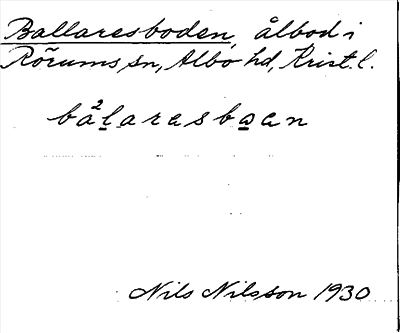 Ballaresboden, ålbod i
Rörums sn, Albo hd, Krist. l.
ba²laresboan
Nils Nilsson 1930